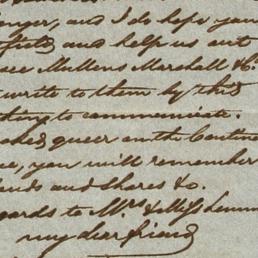 and I do hope you
and help us out
Mullens Marshall & Co.
write to them by this
thing to communicate.
queer on the Contin
you will remember
and Shares &c.
gards to Mrs & Miss
my dear friend